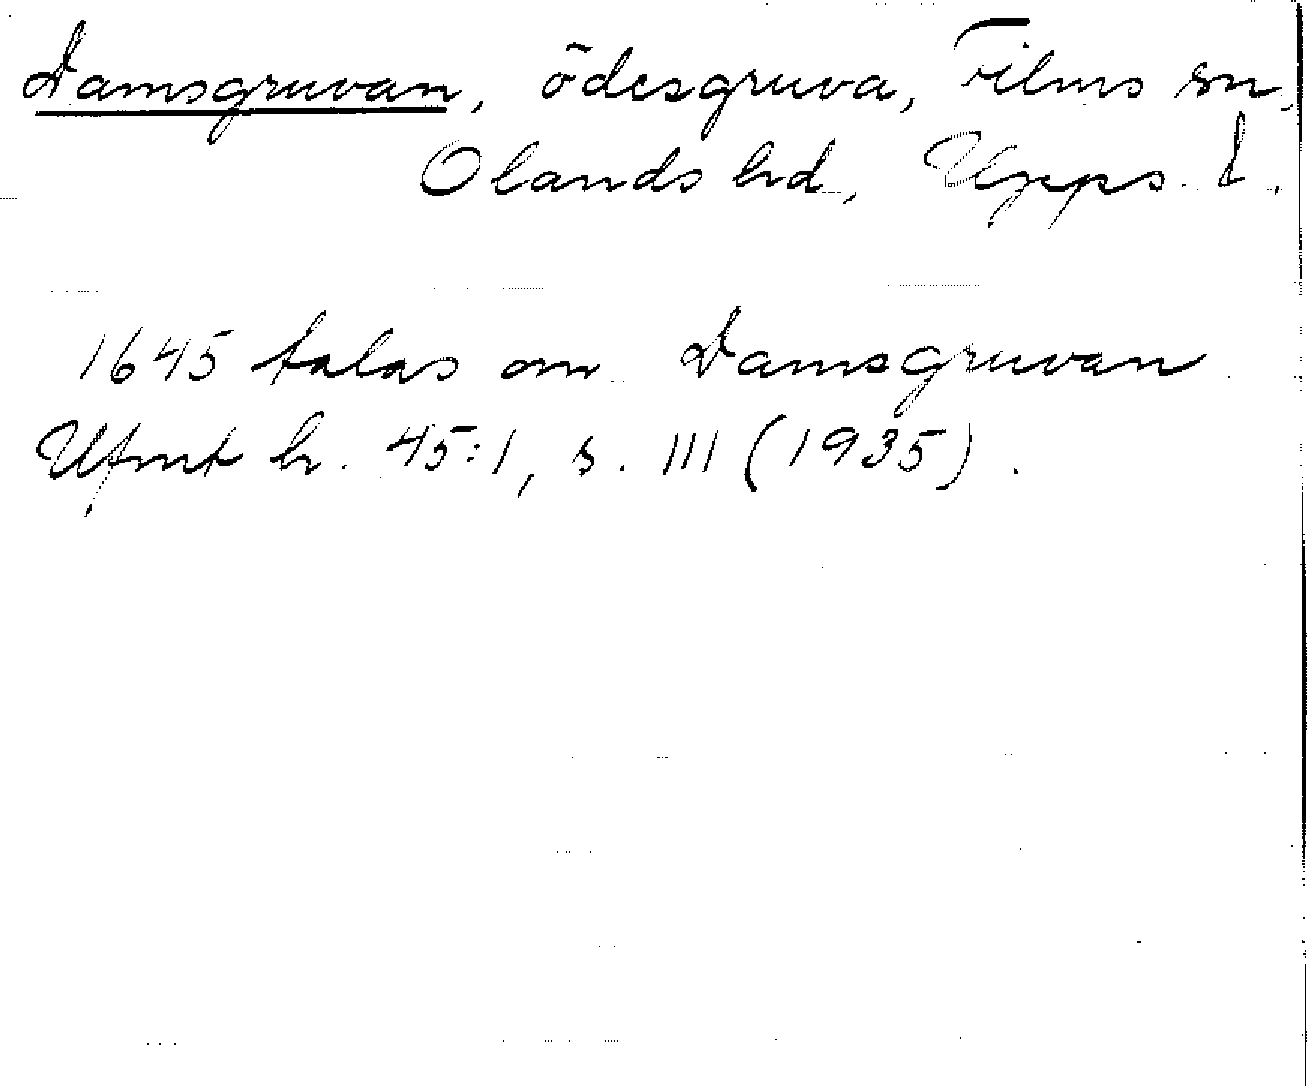 Damsgruvan, ödesgruva, Films sn,
Olands hd, Upps. l.
1645 talas om Damsgruvan
Ufmt h. 45:1, s. 111 (1935).